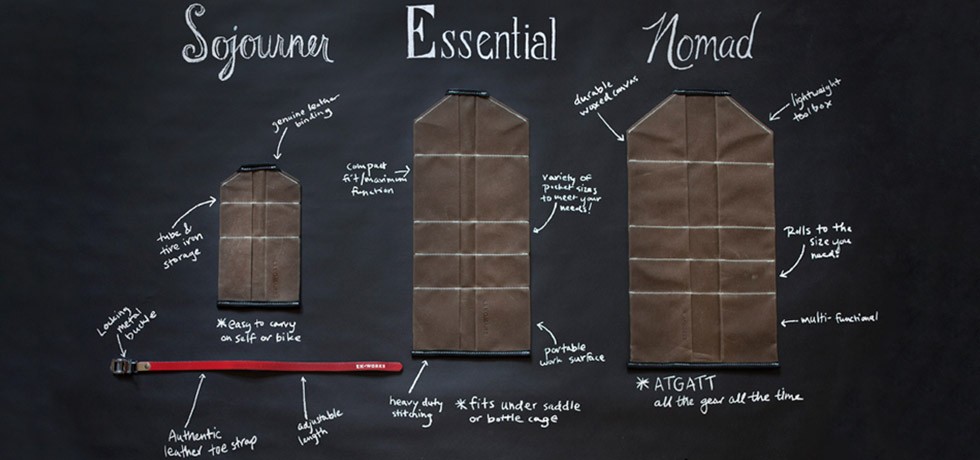 Sojourner
genuine leather
binding
tube &
tire iron
storage
*easy to carry
on self or bike
Locking
metal
buckle
EK-WORKS
Authentic
leather toe strap
adjustable
length
Essential
compact
fit/maximum
function
variety of
pocket sizes
to meet your
needs!
portable
work surface
heavy duty
stitching
*fits under saddle
or bottle cage
Nomad
durable
waxed canvas
lightweight
toolbox
Rolls to the
size you
need!
multi-functional
*ATGATT
all the gear all the time